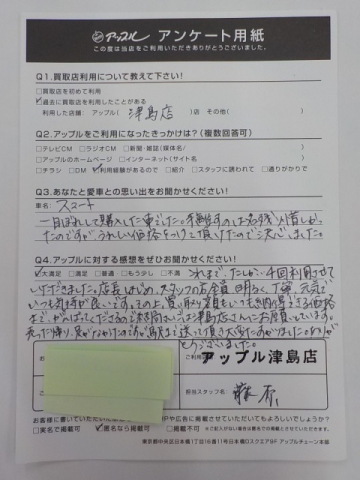 アップル アンケート用紙
この度は当店をご利用いただきありがとうございました。
Q1.買取店利用について教えて下さい!
□買取店を初めて利用
☑過去に買取店を利用したことがある
利用した店舗: アップル( 津島店 )店 その他( )
Q2.アップルをご利用になったきっかけは?(複数回答可)
□テレビCM □ラジオCM □新聞・雑誌(媒体名/ )
□アップルのホームページ □インターネット(サイト名 )
□チラシ □DM ☑利用経験があるので □紹介 □スタッフに誘われて □通りがかりで
Q3.あなたと愛車との思い出をお聞かせください!
車名: スマート
一目ぼれして購入した車でした。手離すのは名残り惜しかっ
たのですが、うれしい価格をつけて頂けたので決心しました。
Q4.アップルに対する感想をぜひお聞かせください!
☑大満足 □満足 □普通 □もう少し □不満 これまで、たしか、4回利用させて
いただきました。店長はじめ、スタッフの方全員、明るく、丁寧、元気で
いつも気持が良いです。その上、買い取り金額もいつも納得できる価格
まで、がんばってくださるので本時間もいつは津島店さんにお願いしています。
売った帰り、足がなかったのですが駅まで送って頂き大変たすかりました。ありが
とうございました。
ご利用
アップル津島店
担当スタッフ名
お客様に書いていただいた
HPや広告に掲載させていただいてもよろしいでしょうか?
□実名で掲載可 ☑匿名なら掲載可 □掲載不可
東京都中央区日本橋1丁目16番11号日本橋Dスクエア9F アップルチェーン本部